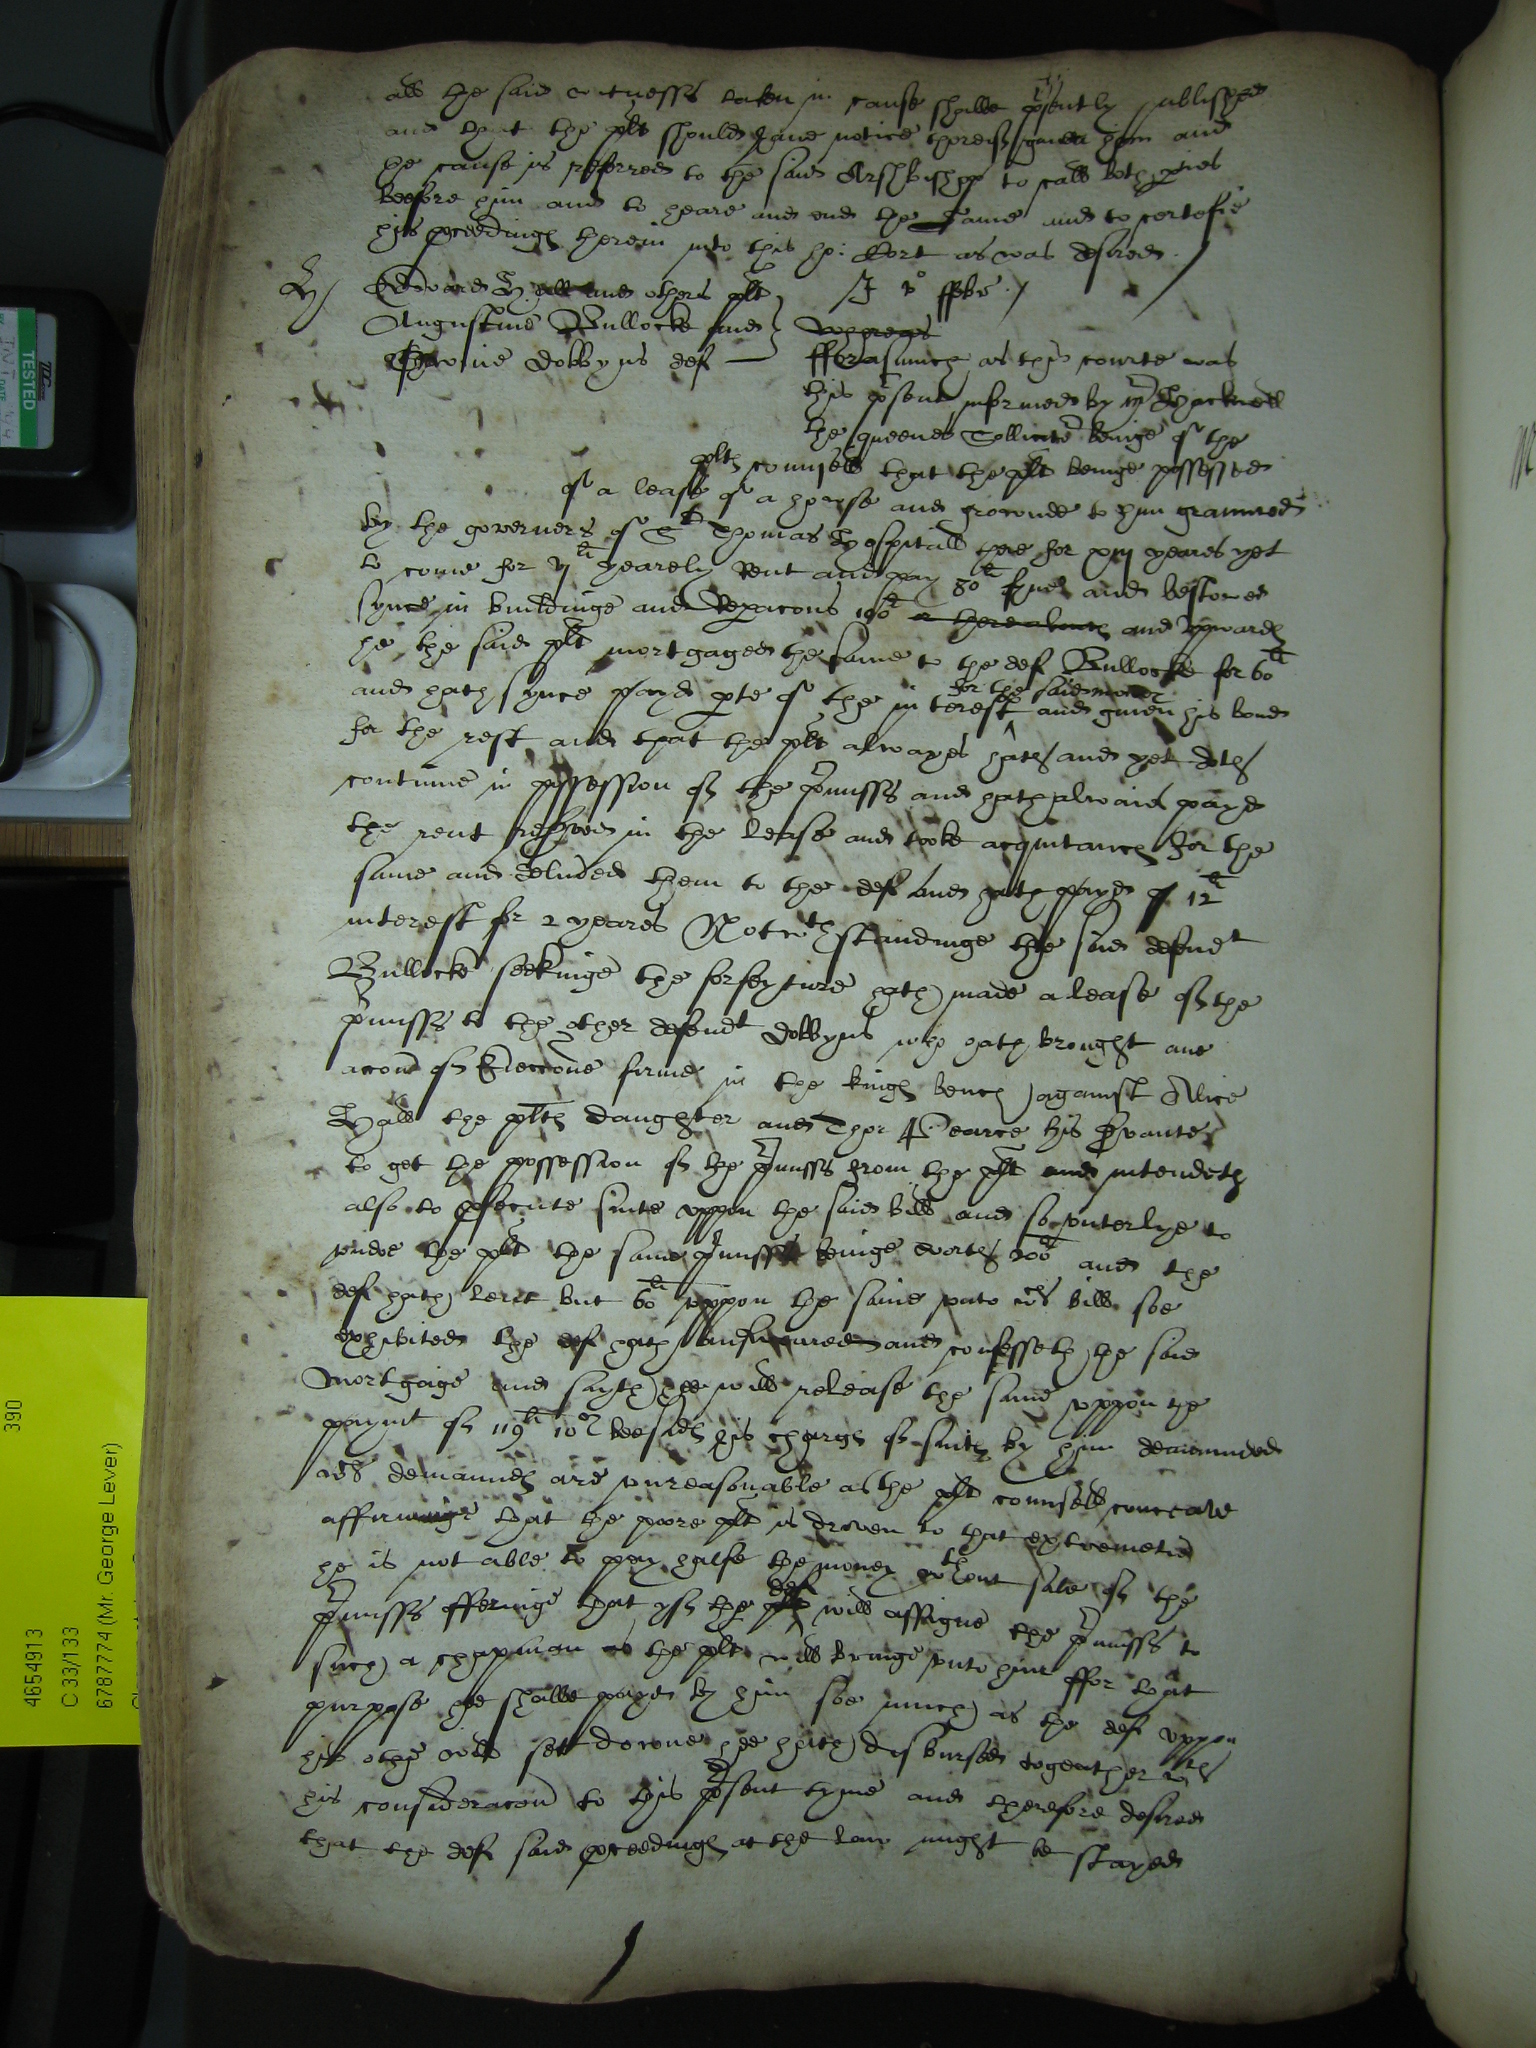 all the said witnesses taken in cause shalbe p'sently published
and that the plt should have notice thereof given him and
the cause is referred to the said Archbishop to call both p'ties
beefore him and to heare and end the same and to certefie
his p'ceedings herein into this ho: Cort as was desired
H
Edward Hall and others plt
Augustine Bullocke and
Dobbyns def
J v° ffebr
Whereas
fforasmuch as this courte was
this p'sent informed by mr Thackwell
the queenes Sollicitr beinge of the
plts counsell that the plt beinge possessed
of a lease of a howse and grownde to him graunted
by the governers of St Thomas Hospitall for xiij yeares yet
to come for vj li yearely rent and pay 80li fyne and bestowed
synce in buildinge and Repacons 100li and upwards
he the said plt mortgaged the same to the def Bullocke for 60li
for the said money
and hath synce payd p'te of the interest and given his bond
for the rest and that the plt alwayes hath and yet doth
contynue in possession of the p'misss and hath alwaies payd
the rent res'ved in the lease and tooke acquitancs for the
same and delived them to the def and hath payd 12li
interest for 2 yeares Notwthstandinge the said defendt
Bullocke seekinge the forfeyture hath made a lease of the
p'misss to the other defendt Dobbyns who hath brought ane
accon of Eieccone firme in the kings bench against Alice
Hall the plts daughter and Thos Pearce his s'vante
to get the possession of the p'misss from the plt and intendeth
also to p'secute suite uppon the said bill and so vuterlye to
vndoe the plt the same p'misss beinge worth 200li and the
def hath lent but 60li vppon the same vnto wch bill soe
exhibited the def hath answeared and confesseth the said
Mortgage and sayth hee will release the same vppon the
paymt of 119li 10s beesids his chargs of suits by him demaunded
wch demaunds are vnreasonable as the plt counsell conceave
affirminge that the poore plt is dreven to that extremetie
he is not able to pay halfe the money wthout sale of the
def
p'misss offeringe that yf the plt will assigne the p'misss to
such a chapman as the plt will bringe vnto him ffor that
purpose he shalbe payd by him soe much as the def vppon
his othe will sett downe hee hath disbursed togeather wth
his consideracon to this p'sent tyme and therefore desired
that the def said p'ceedings at the law might be stayed
TESTED
390
4654913
C 33/133
6787774 (Mr. George Lever)